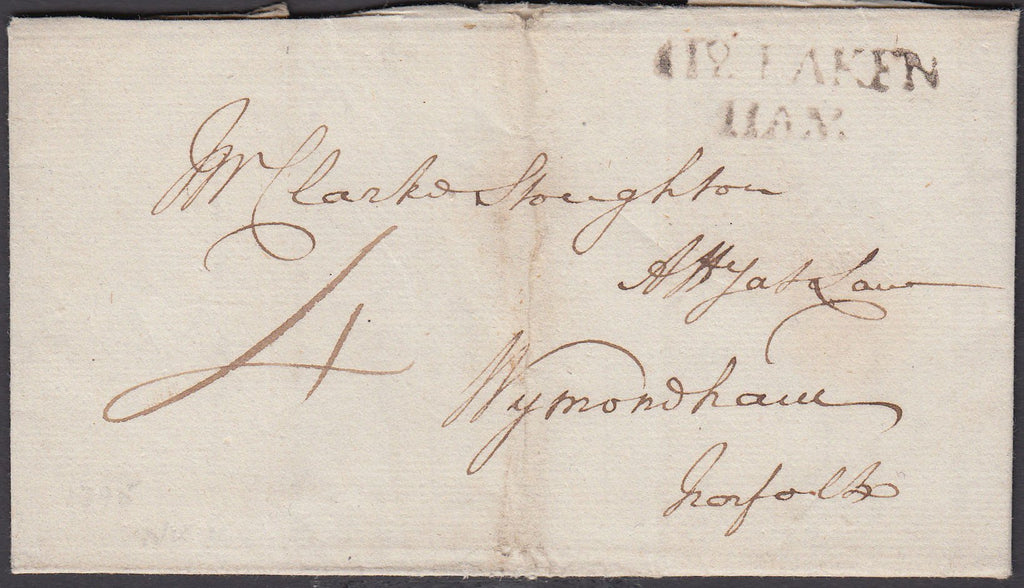 FAKEN
HAM
Mr Clarke Stoughton
4
Atty at Law
Wymondham
Norfolk